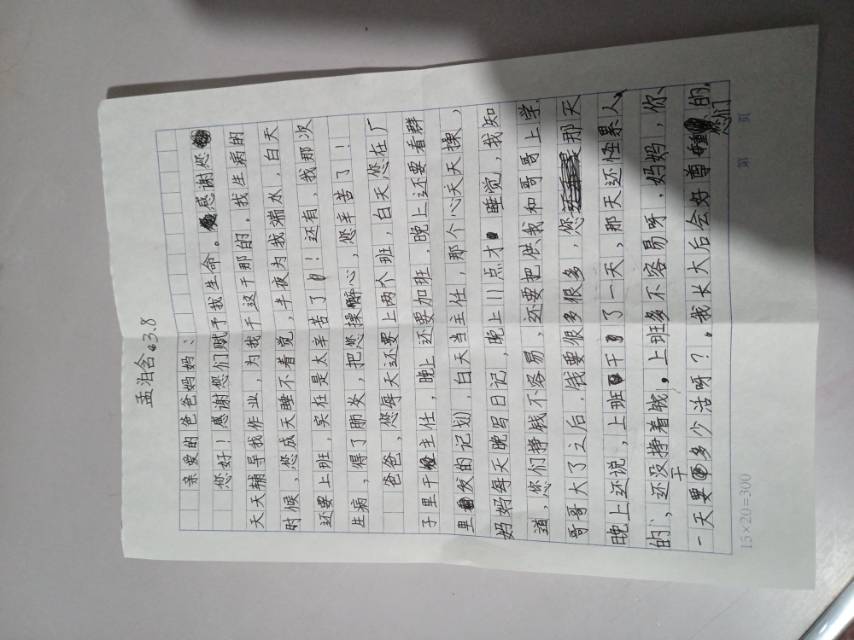 孟泊含 3.8
亲爱的爸爸妈妈：
您好！感谢您们赋予我生命。感谢您
天天辅导我作业，为我干这干那的，我生病的
时候，您成天睡不着觉，半夜为我端水，白天
还要上班，实在是太辛苦了！还有，我那次
生病，得了肺炎，把您操心，您辛苦了！
爸爸，您每天还要上两个班，白天您在厂
子里干主任，晚上还要加班，晚上还要看群
里发的记划，白天当主任，那个心天天操，
妈妈每天晚写日记，晚上11点才睡觉，我知
道，您们挣钱不容易，还要把供我和哥哥上学
哥哥大了之后，钱要很多很多，您那天
晚上还说，上班干了一天，那天还怪累人
的，还没挣着钱，上班多不容易呀，妈妈，你
一天要干多少活呀？。我长大后会好的
您们
第 页
15×20=300